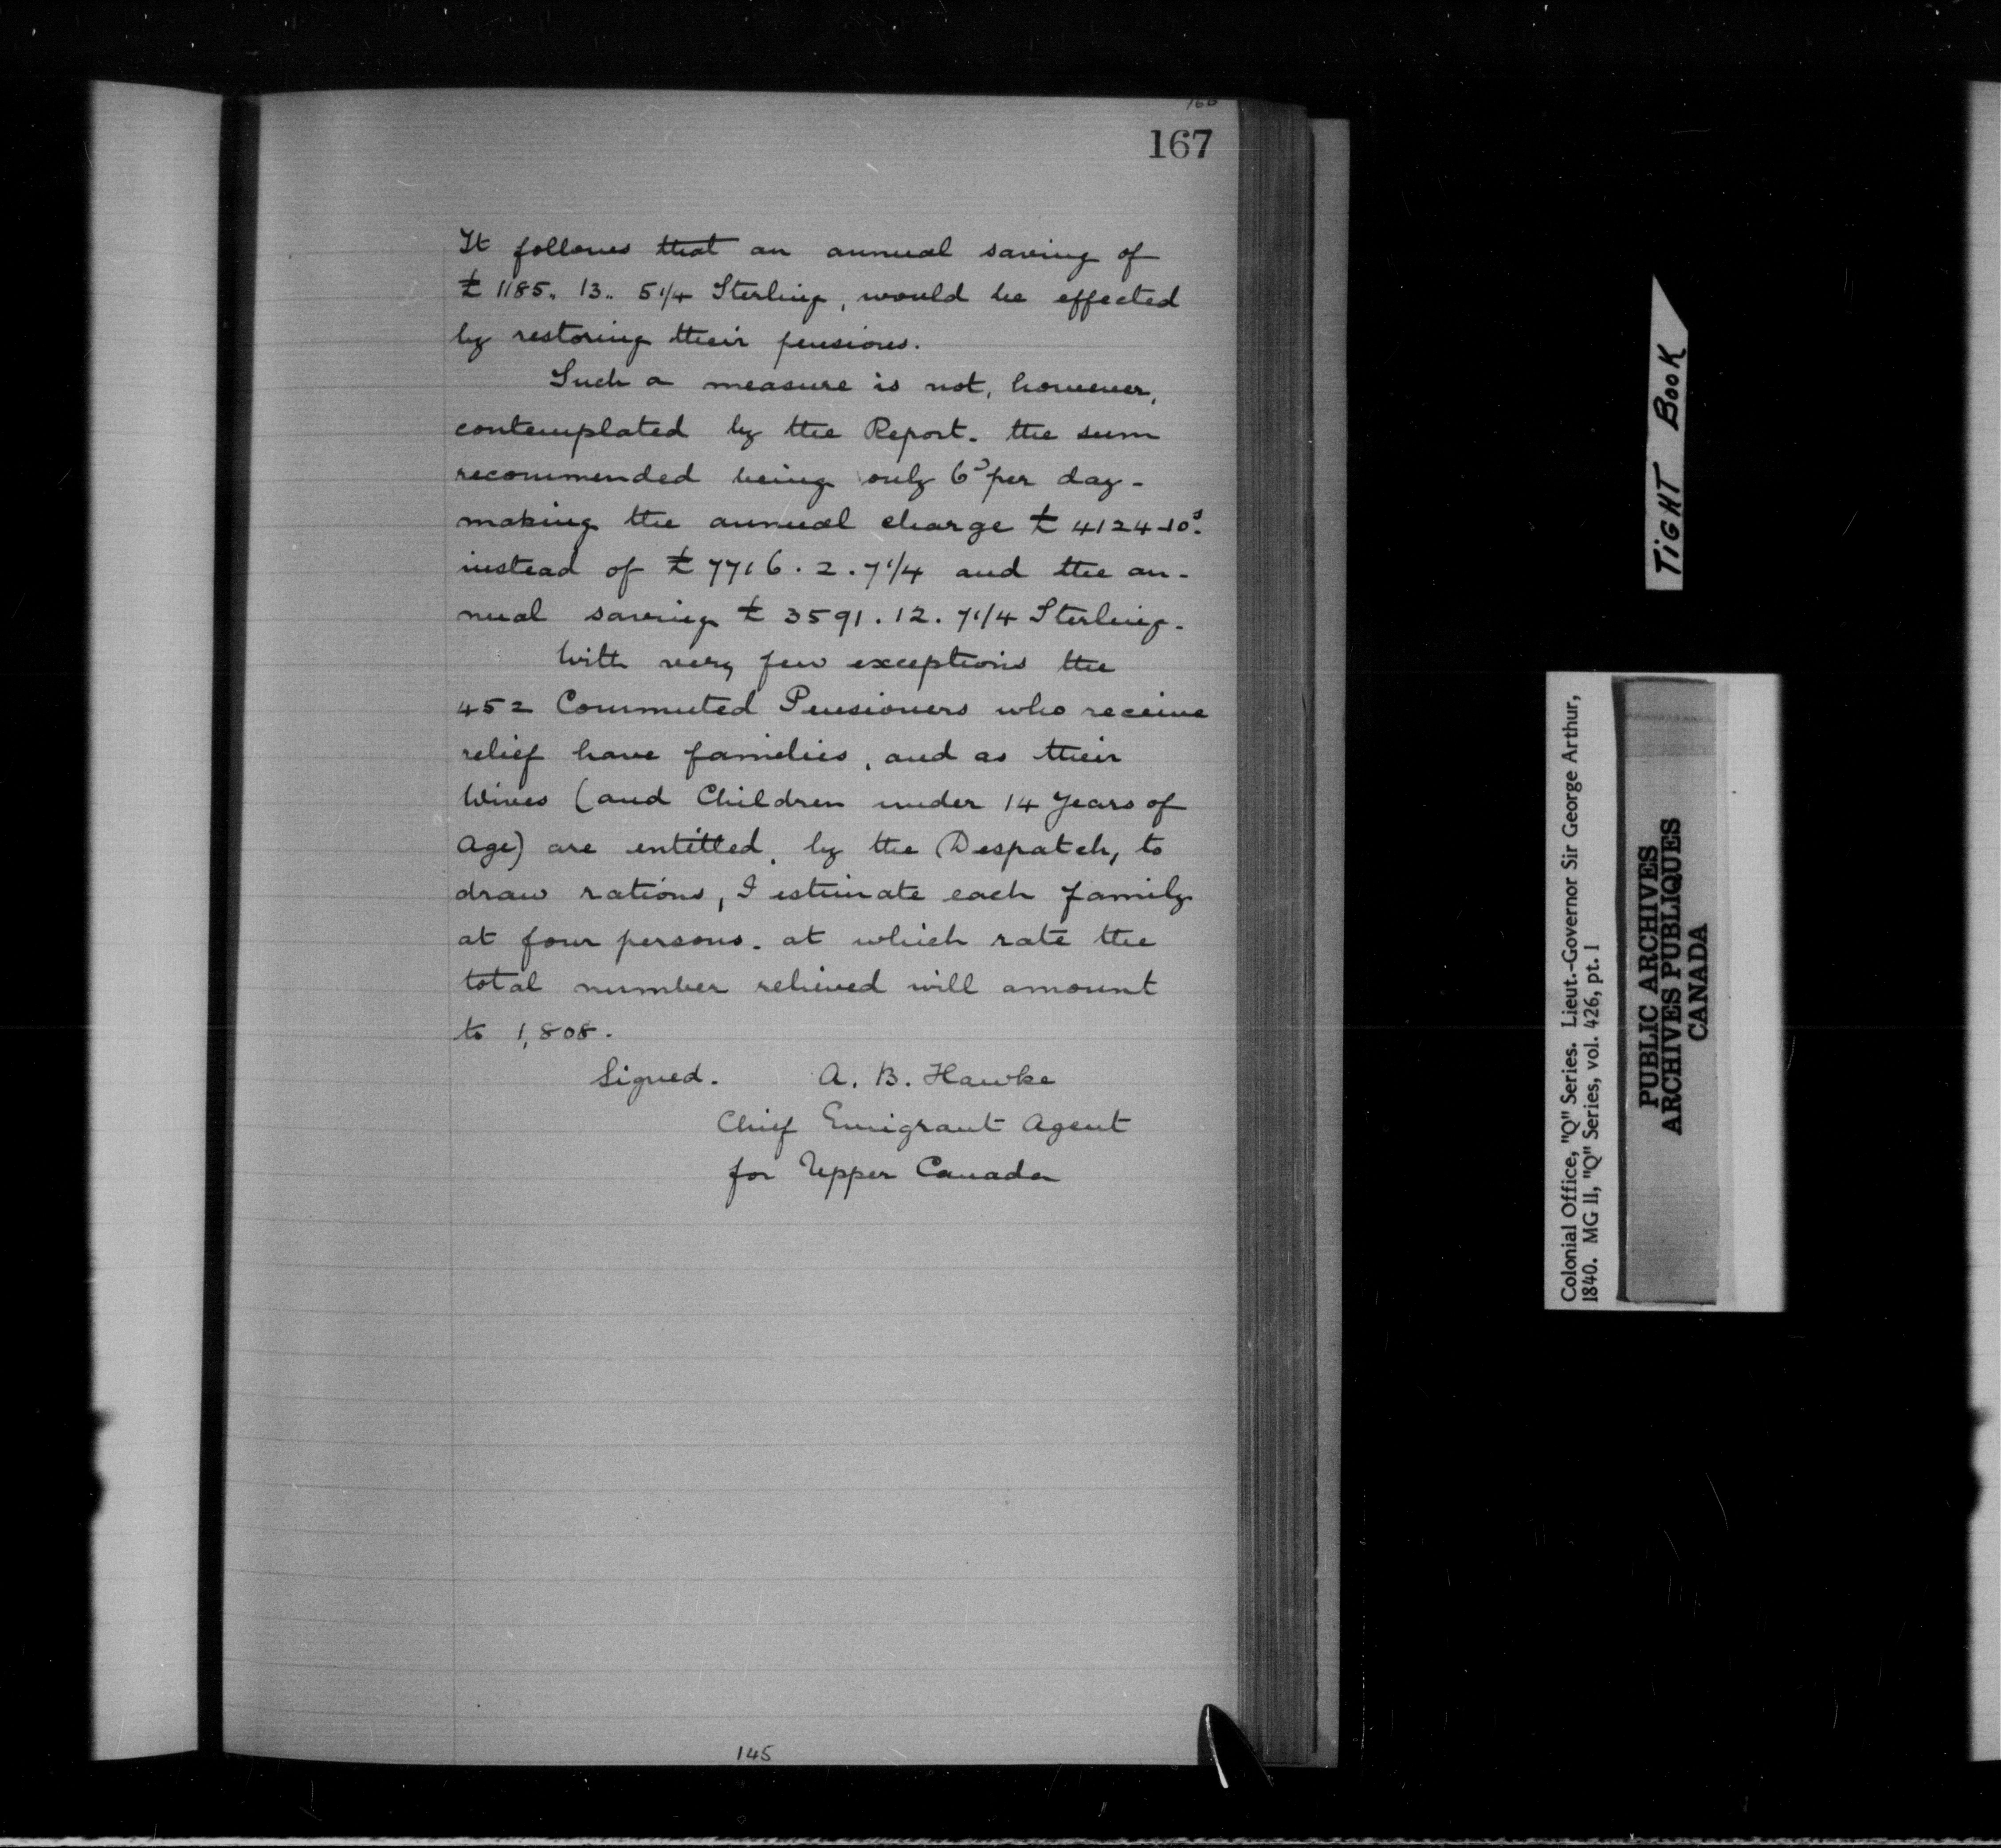 167
It follows that an annual saving of
£ 1185. 13.. 5 1/4 Sterling, would be effected
by restoring their pensions.
Such a measure is not, however,
contemplated by the Report. the sum
recommended being only 6d per day -
making the annual charge £ 4124-10s.
instead of £ 7716. 2. 7 1/4 and the an-
nual saving £ 3591. 12. 7 1/4 Sterling.
With very few exceptions the
452 Commuted Pensioners who receive
relief have families, and as their
Wives (and Children under 14 Years of
Age) are entitled, by the Despatch, to
draw rations, I estimate each family
at four persons. at which rate the
total number relieved will amount
to 1,808.
Signed. A. B. Hawke
Chief Emigrant Agent
for Upper Canada
145
TIGHT BOOK
Colonial Office, "Q" Series. Lieut.-Governor Sir George Arthur,
1840. MG 11, "Q" Series, vol. 426, pt. 1
PUBLIC ARCHIVES
ARCHIVES PUBLIQUES
CANADA